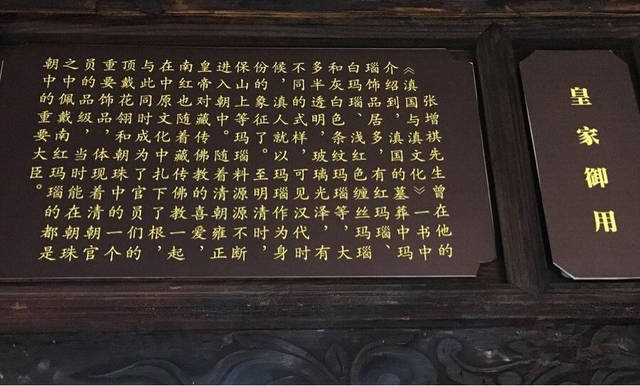 皇家御用
张增祺先生曾在他的
《滇国与滇文化》一书中
介绍到，滇国的墓葬中玛
瑙饰品居多，有红玛瑙、
白玛瑙、浅红色缠丝玛瑙
和灰白色条纹玛瑙等，大
多半透明，玻璃光泽，有
不同的式样，可见汉代时
候，滇人就以玛瑙作为身
份的象征了。至明清时，
保山上等玛瑙料源源不断
进入朝中。随着清朝雍正
皇帝对藏传佛教的喜爱，
南红也随着藏传佛教一起
在中原文化中扎下了根，
与此同时成为了官员们的
顶戴花翎和朝珠中的一个
重要饰品，体现着清朝官
员的品级，当时能在朝珠
之中佩戴南红玛瑙的都是
朝中的重要大臣。